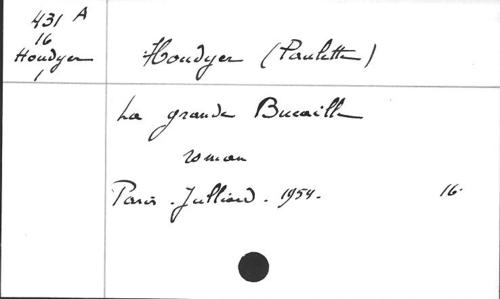 431 A
16
Houdyer
1
Houdyer (Paulette)
La grande Bucaille
roman
Paris. Julliard. 1954. 16.